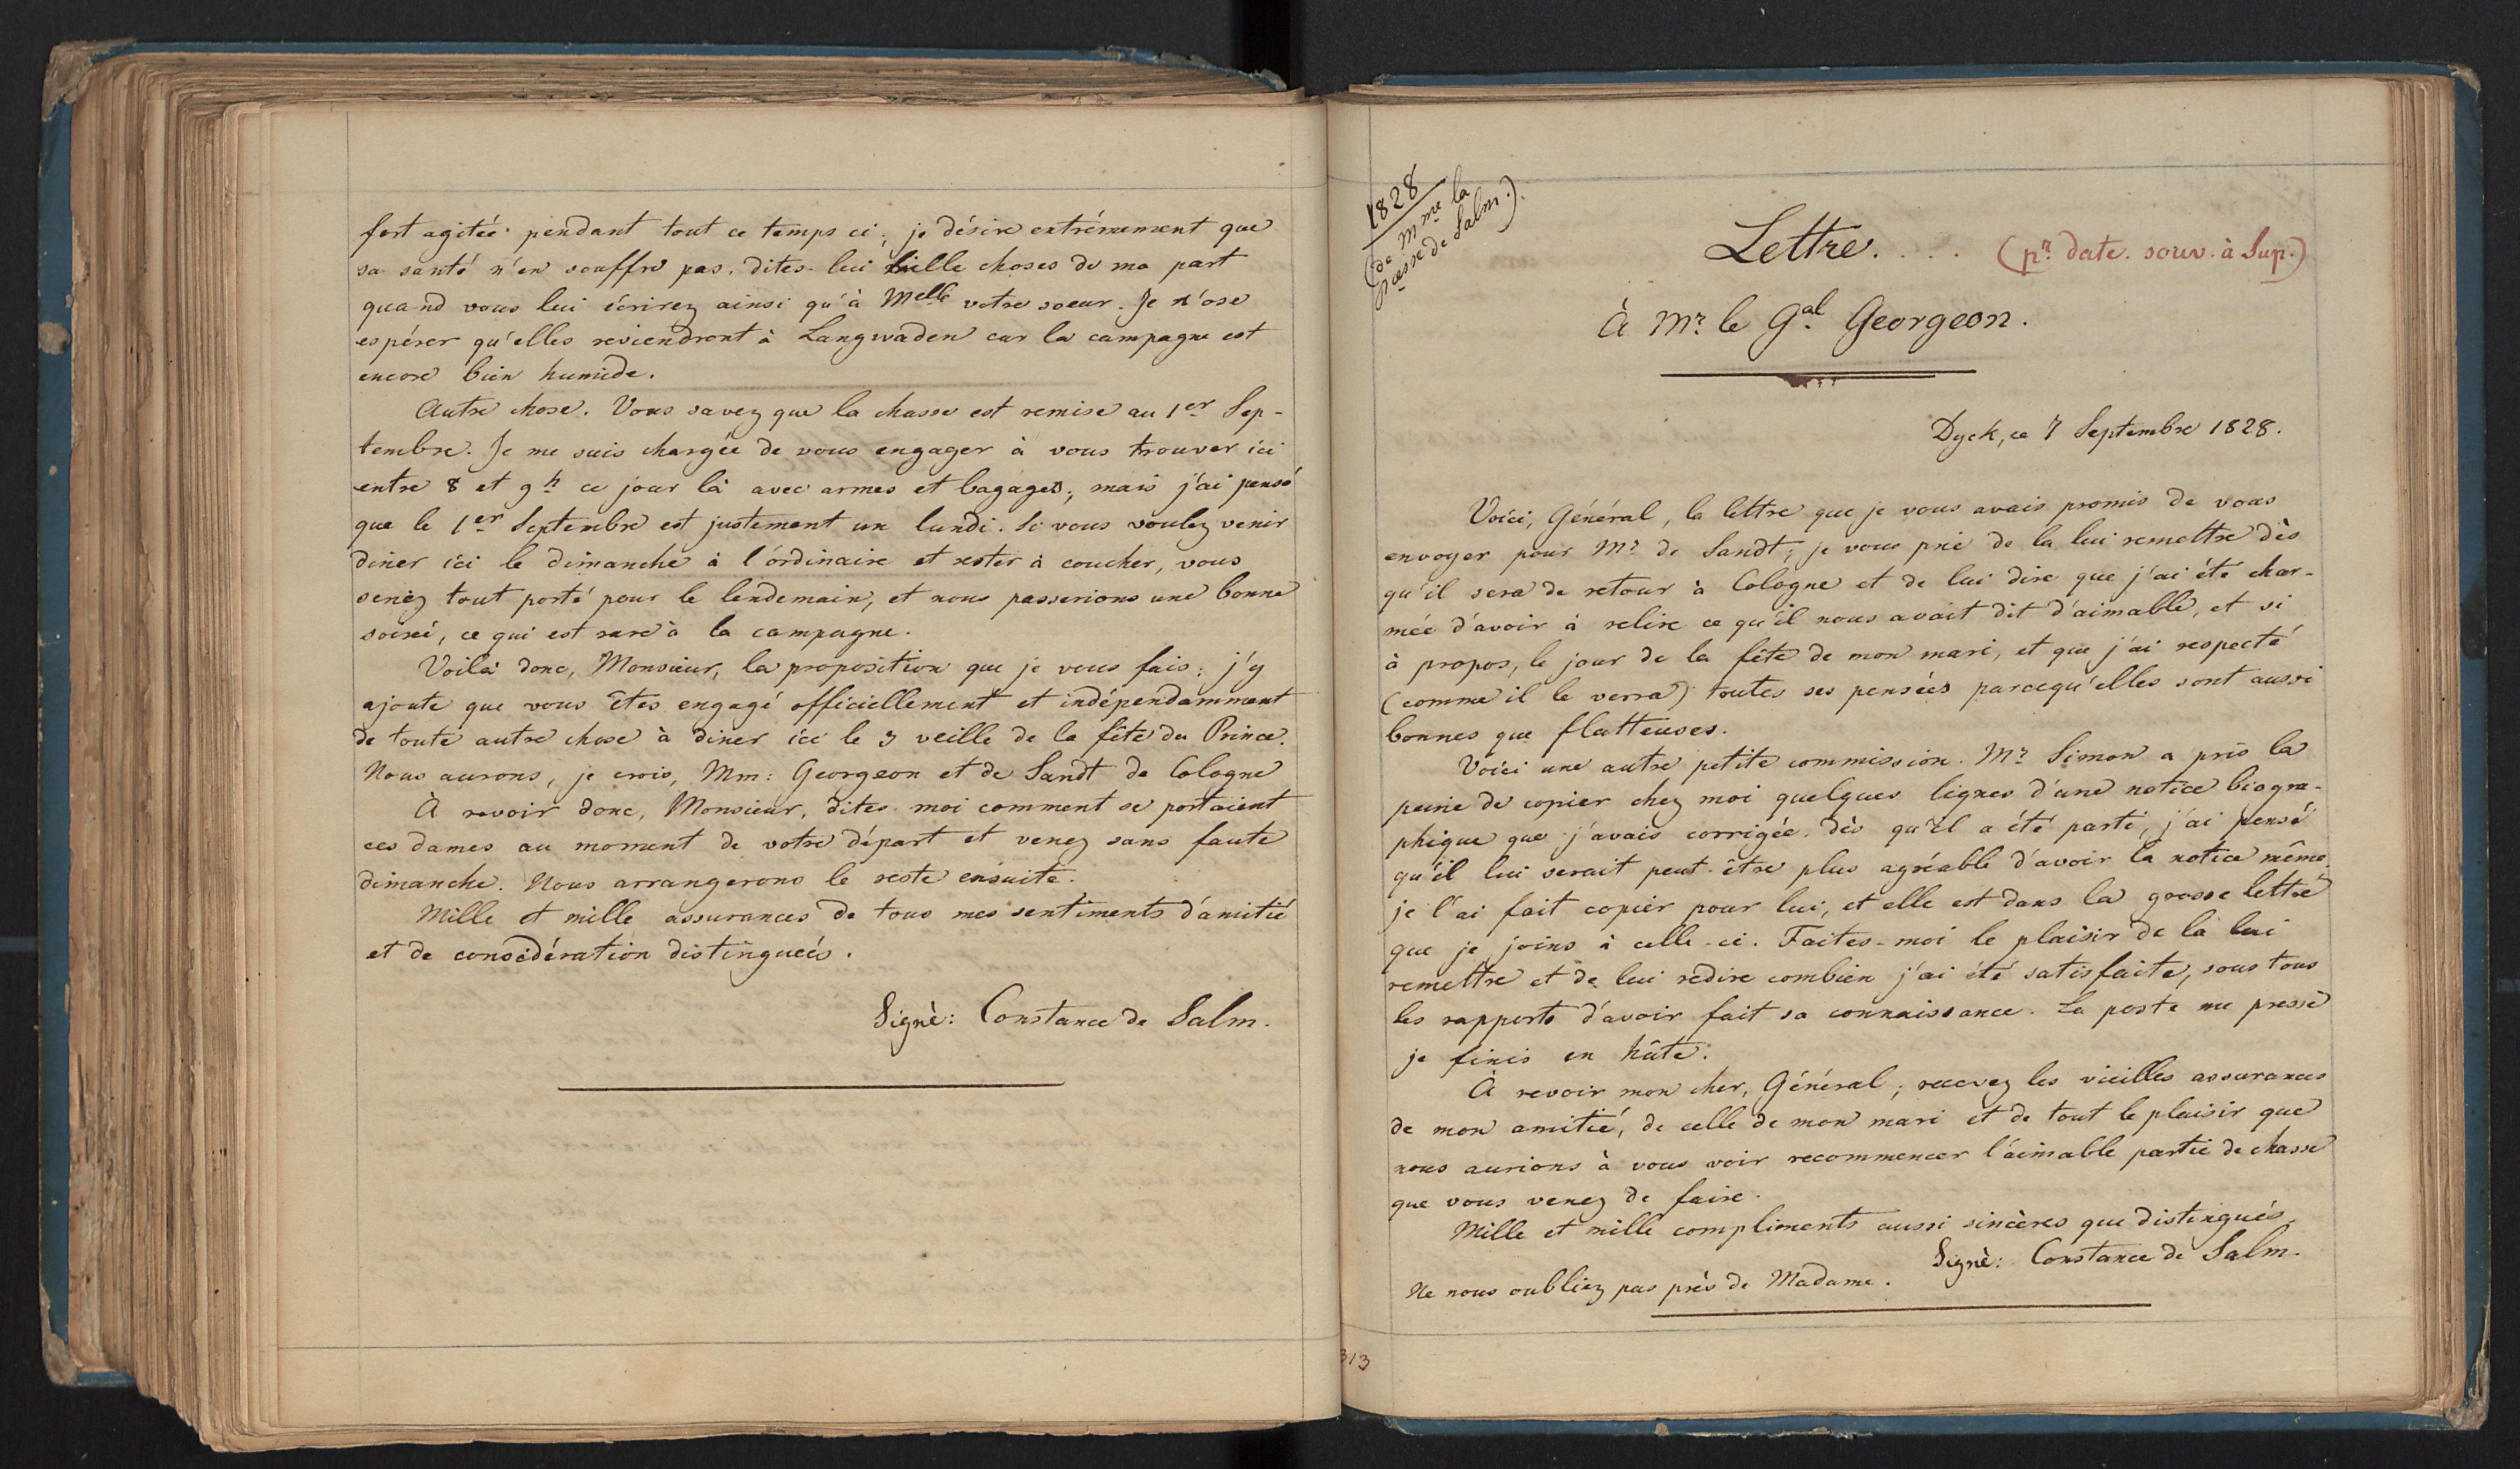 fort agitée pendant tout ce temps ci; je désire extrémement que
sa santé n'en souffre pas. dites-lui mille choses de ma part
quand vous lui écrirez ainsi qu'à Melle votre soeur. Je n'ose
espérer qu'elles reviendront à Langwaden car la campagne est
encore bien humide.
Autre chose. Vous savez que la chasse est remise au 1er Sep-
tembre. Je me suis chargée de vous engager à vous trouver ici
entre 8 et 9h ce jour là avec armes et bagages; mais j'ai pensé
que le 1er Septembre est justement un lundi. Si vous voulez venir
diner ici le dimanche à l'ordinaire et rester à coucher, vous
seriez tout porté pour le lendemain, et nous passerions une bonne
soirée, ce qui est rare à la campagne.
Voilà donc, Monsieur, la proposition que je vous fais: j'y
ajoute que vous êtes engagé officiellement et indépendamment
de toute autre chose à diner ici le 3 veille de la fête du Prince.
Nous aurons, je crois, Mm: Georgeon et de Sandt de Cologne
À revoir donc, Monsieur, dites moi comment se portaient
ces dames au moment de votre départ et venez sans faute
dimanche. Nous arrangerons le reste ensuite.
Mille et mille assurances de tous mes sentiments d'amitié
et de considération distinguées.
Signé: Constance de Salm.
1828
(de Mme la
Pcesse de Salm.).
Lettre. . . . (pr date. souv. à Sup.)
À Mr le Gal Georgeon.
Dyck, ce 7 Septembre 1828.
Voici, Général, la lettre que je vous avais promis de vous
envoyer pour Mr de Sandt; je vous prie de la lui remettre dès
qu'il sera de retour à Cologne et de lui dire que j'ai été char-
mée d'avoir à relire ce qu'il nous avait dit d'aimable, et si
à propos, le jour de la fête de mon mari, et que j'ai respecté
(comme il le verra) toutes ses pensées parcequ'elles sont aussi
bonnes que flatteuses.
Voici une autre petite commission. Mr Simon a pris la
peine de copier chez moi quelques lignes d'une notice biogra-
phique que j'avais corrigée. Dès qu'il a été parti, j'ai pensé
qu'il lui serait peut-être plus agréable d'avoir la notice même.
je l'ai fait copier pour lui, et elle est dans la grosse lettre
que je joins à celle-ci. Faites-moi le plaisir de la lui
remettre et de lui redire combien j'ai été satisfaite, sous tous
les rapports d'avoir fait sa connaissance. La poste me presse
je finis en hâte.
À revoir mon cher, Général; recevez les vieilles assurances
de mon amitié, de celle de mon mari et de tout le plaisir que
nous aurions à vous voir recommencer l'aimable partie de chasse
que vous venez de faire.
Mille et mille compliments aussi sincères que distingués.
Signé: Constance de Salm.
Ne nous oubliez pas près de Madame.
313